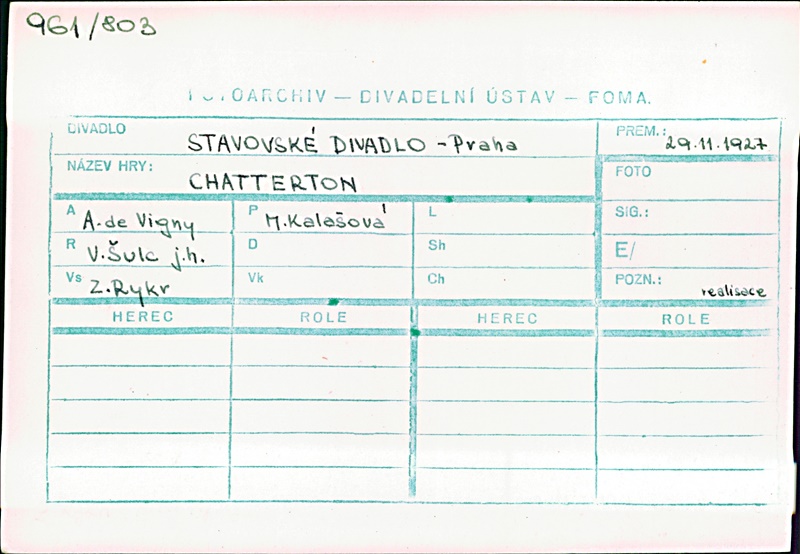 961/803
FOTOARCHIV — DIVADELNÍ ÚSTAV — FOMA.
DIVADLO STAVOVSKÉ DIVADLO - Praha PREM.: 29.11.1927
NÁZEV HRY: CHATTERTON FOTO
A A. de Vigny P M. Kalašová L SIG.:
R V. Šulc j.h. D Sh E/
Vs Z. Rykr Vk Ch POZN.: realisace
HEREC ROLE HEREC ROLE